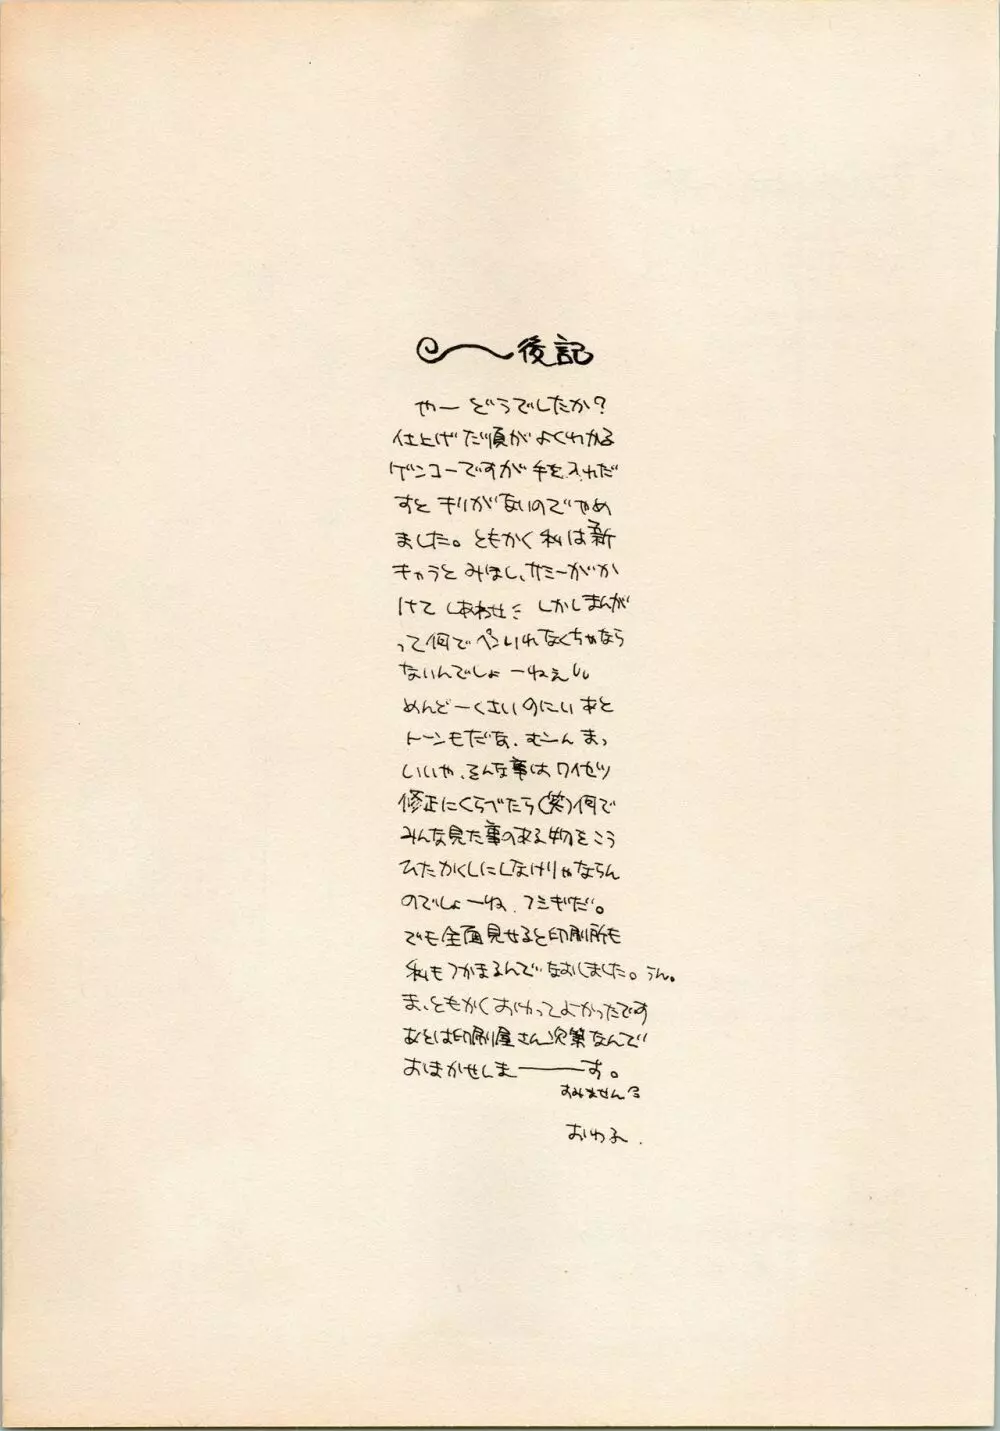 後記
やー どうでしたか?
仕上げた順が よくわかる
ゲンコーですが 手を入れだ
すと キリがないのでやめ
ました。ともかく 私は新
キャラと みほし、サミーがか
けて しあわせ しかしまんが
って何で ペンいれなくちゃなら
ないんでしょーねぇ
めんどーくさいのにい あと
トーンもだな、むーん まっ
いいや、そんな事はワイセツ
修正にくらべたら(笑)何で
みんな見た事のある物をこう
ひたかくしにしなけりゃならん
のでしょーね、フシギだ。
でも全面見せると印刷所も
私もつかまるんでなおしました。うん。
ま、ともかくおわってよかったです
あとは印刷屋さん次第なんで
おまかせしま―――す。
すみません
おわる.